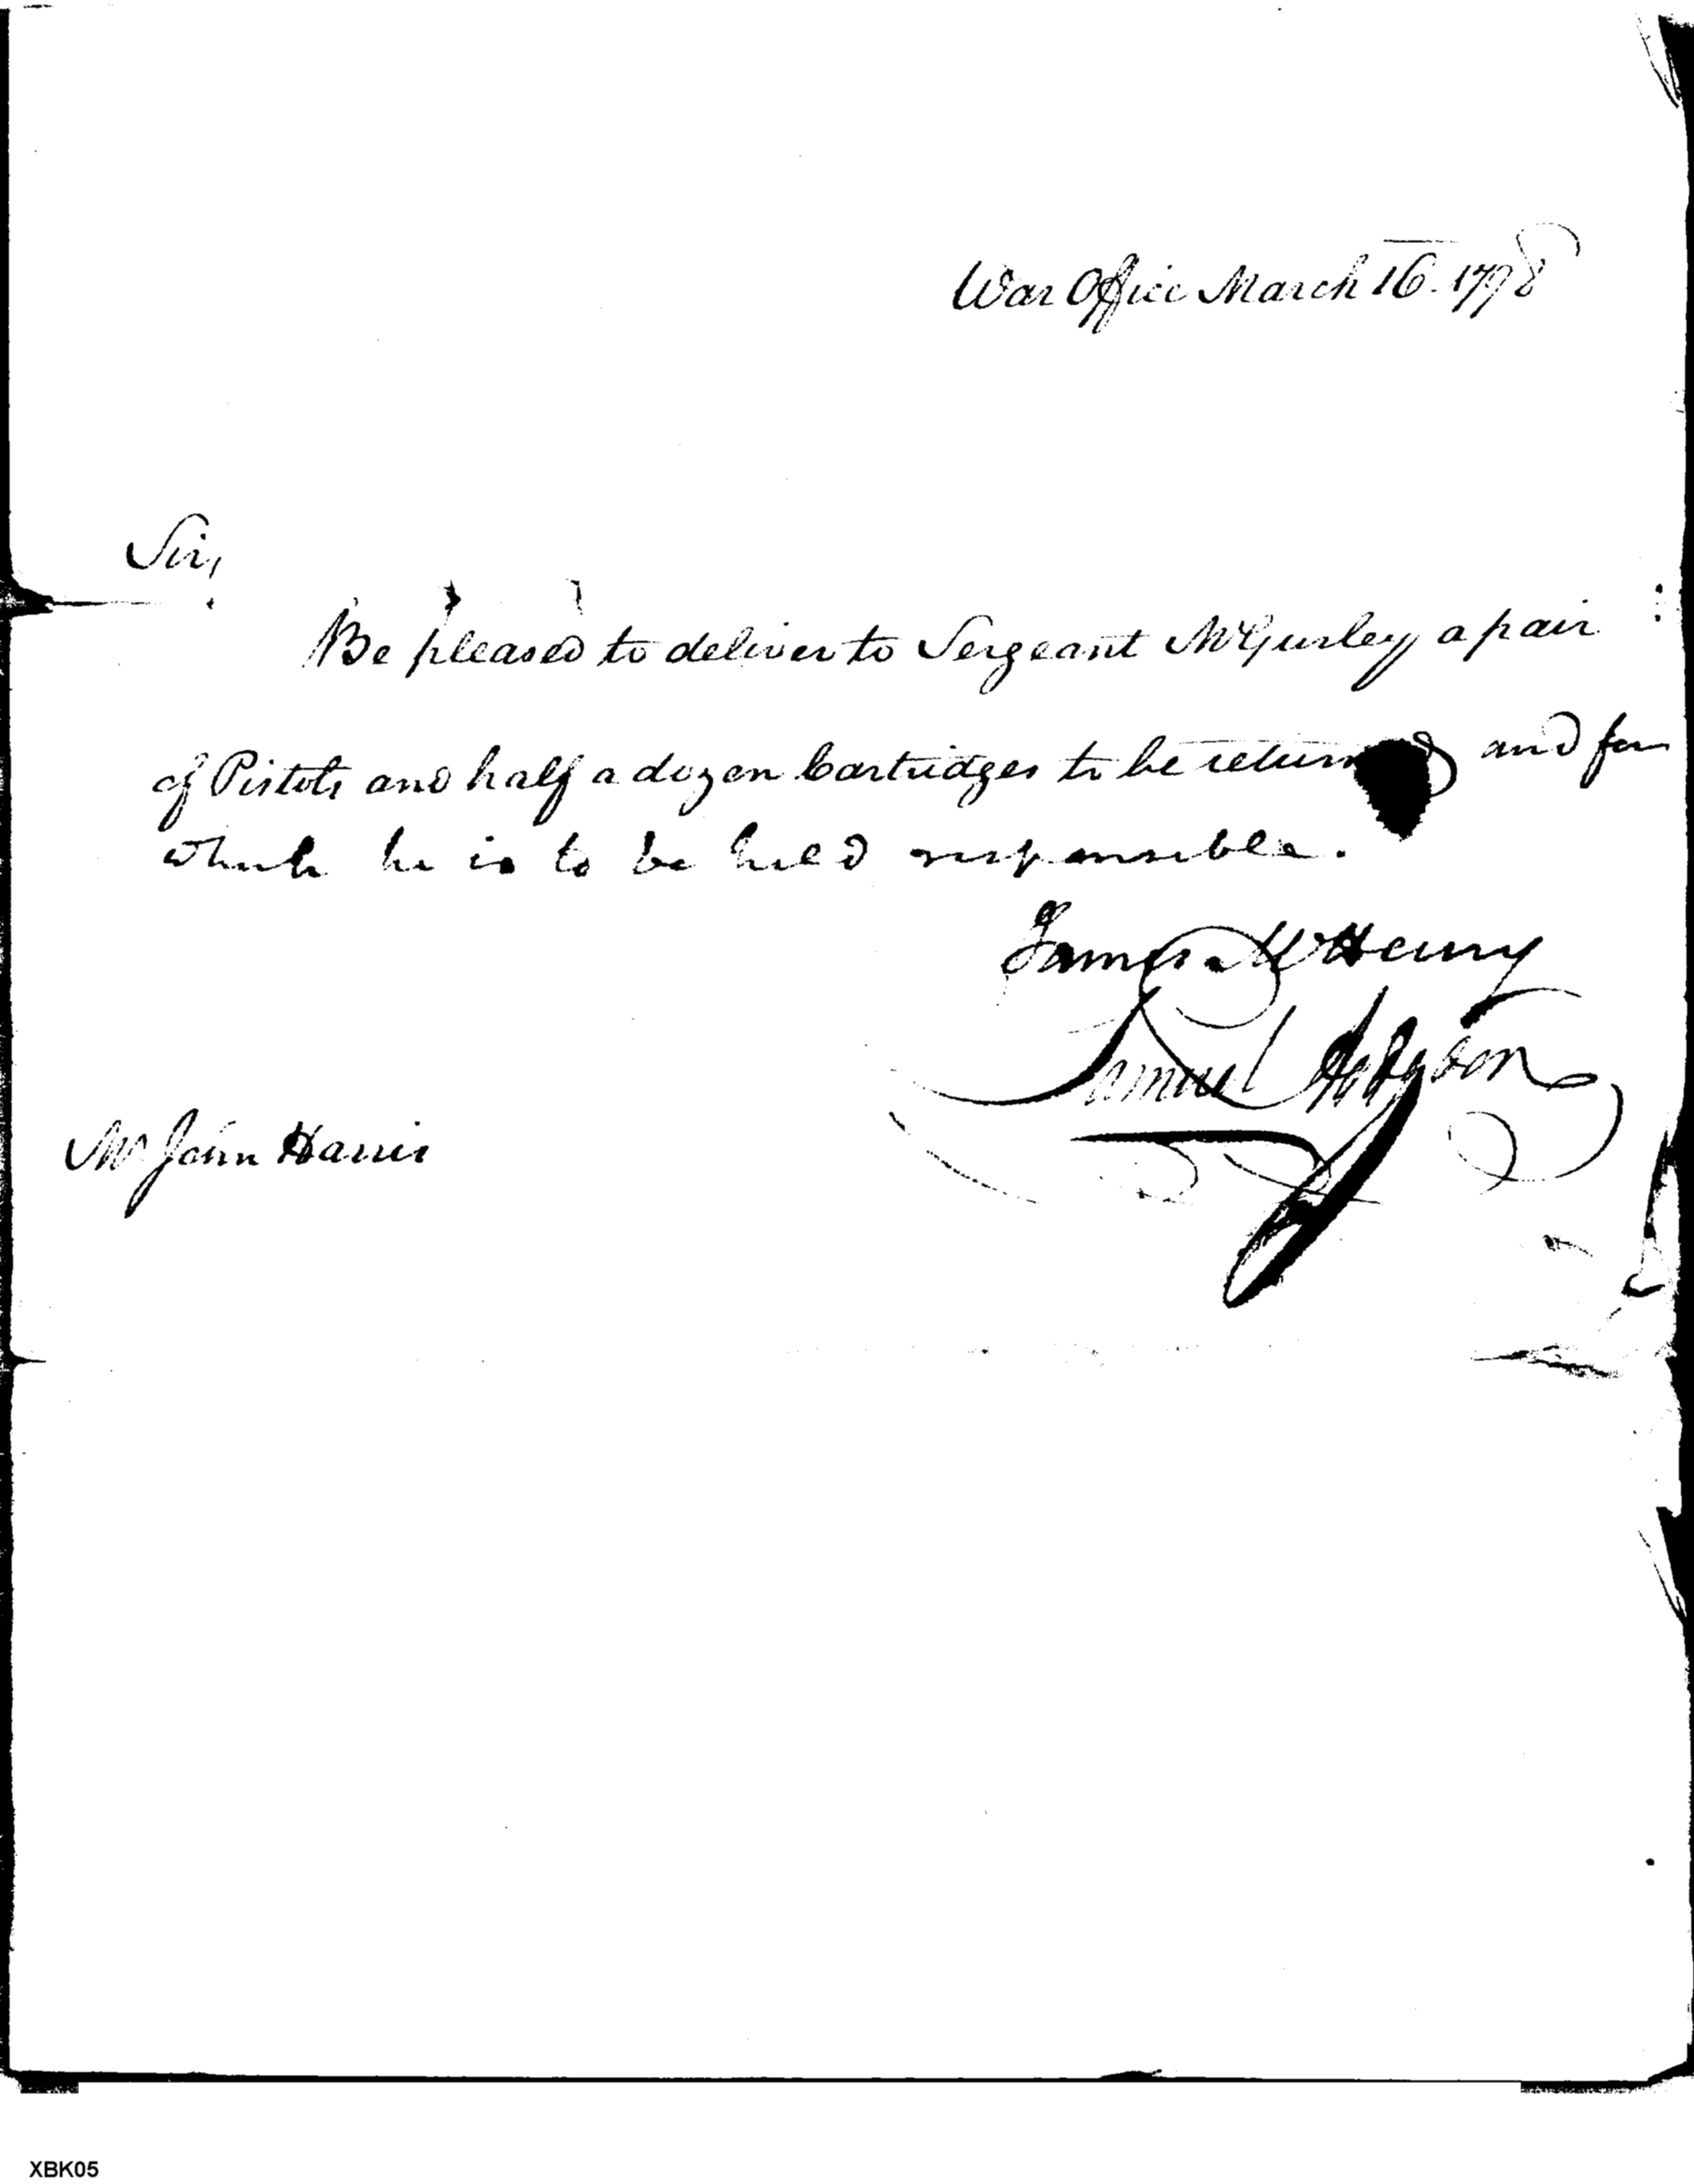 War Office March 16. 1798
Sir,
Be pleased to deliver to Sergeant McGurley a pair
of Pistols and half a dozen Cartridges to be returned and for
which he is to be held responsible.
James McHenry
Samuel Hodgdon
Mr John Harris
XBK05